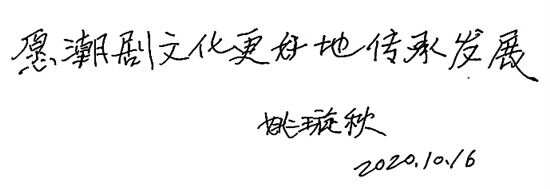 愿潮剧文化更好地传承发展
姚璇秋
2020.10.16